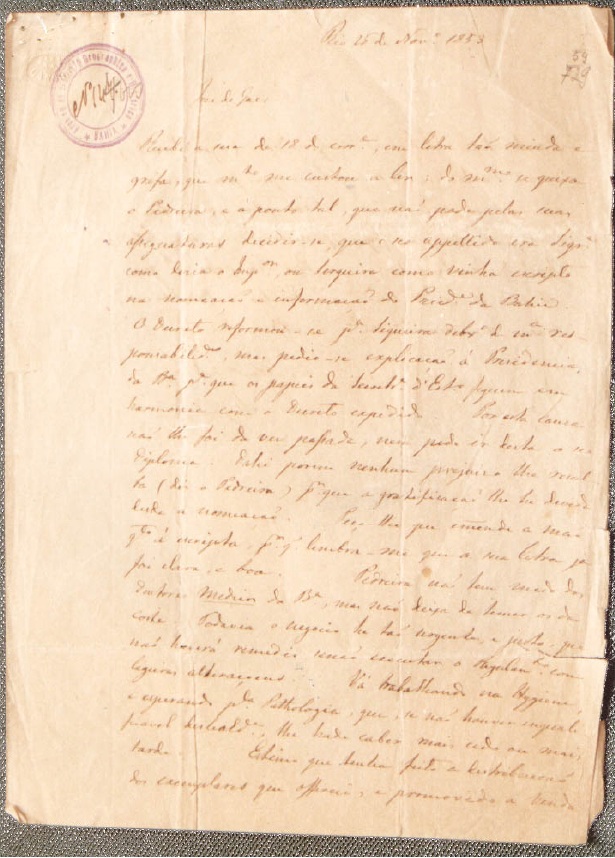 Rio 25 de Nov.º 1853
Recebi a sua de 18 do corr.e, em letra taõ miuda e
que m.to me custou a ler; do m.mo se queixa
o Pedreira, e a ponto tal, que naõ pode pelas suas
assignaturas decidir-se, que o seo appellido era Siqr.ª
como dizia o ou Cerqueira como vinha escripto
na nomeaçaõ e informaçaõ do Prezid.e da Bahia.
O Decreto reformou-se p.ª Siqueira debx.º de m.ª res-
ponsabilid.e, mas pedio-se explicaçaõ á Presidencia
da B.ª p.ª que os papeis da Secret.ª d'Estº fiquem em
harmonia com o Decreto expedido. Por esta causa
naõ lhe foi da vez passada, nem pode ir desta o seo
diploma. Dahi porem nenhum prejuizo lhe resul-
ta (diz o Pedreira) p.r que a gratificaçaõ lhe he devida
desde a nomeaçaõ. que emende a ma-
q.do escripta, p.r q' lembra-me que a sua letra ja
foi clara, e boa. Pedreira naõ tem medo dos
Doutores Medicos da B.ª, mas naõ deixa de temer os da
Corte. Todavia o negocio he taõ urgente, e justo, que
naõ haverá remedio senaõ executar o Regulam.to com
ligeiras alteraçoens. Vá trabalhando na Hygiene
e esperando p.la Pathologia, que, se naõ houver
lhe hade caber mais cedo ou mais
tarde. Estimo que tenha feito a distribuiçaõ
dos exemplares que offereci, e promovido a venda